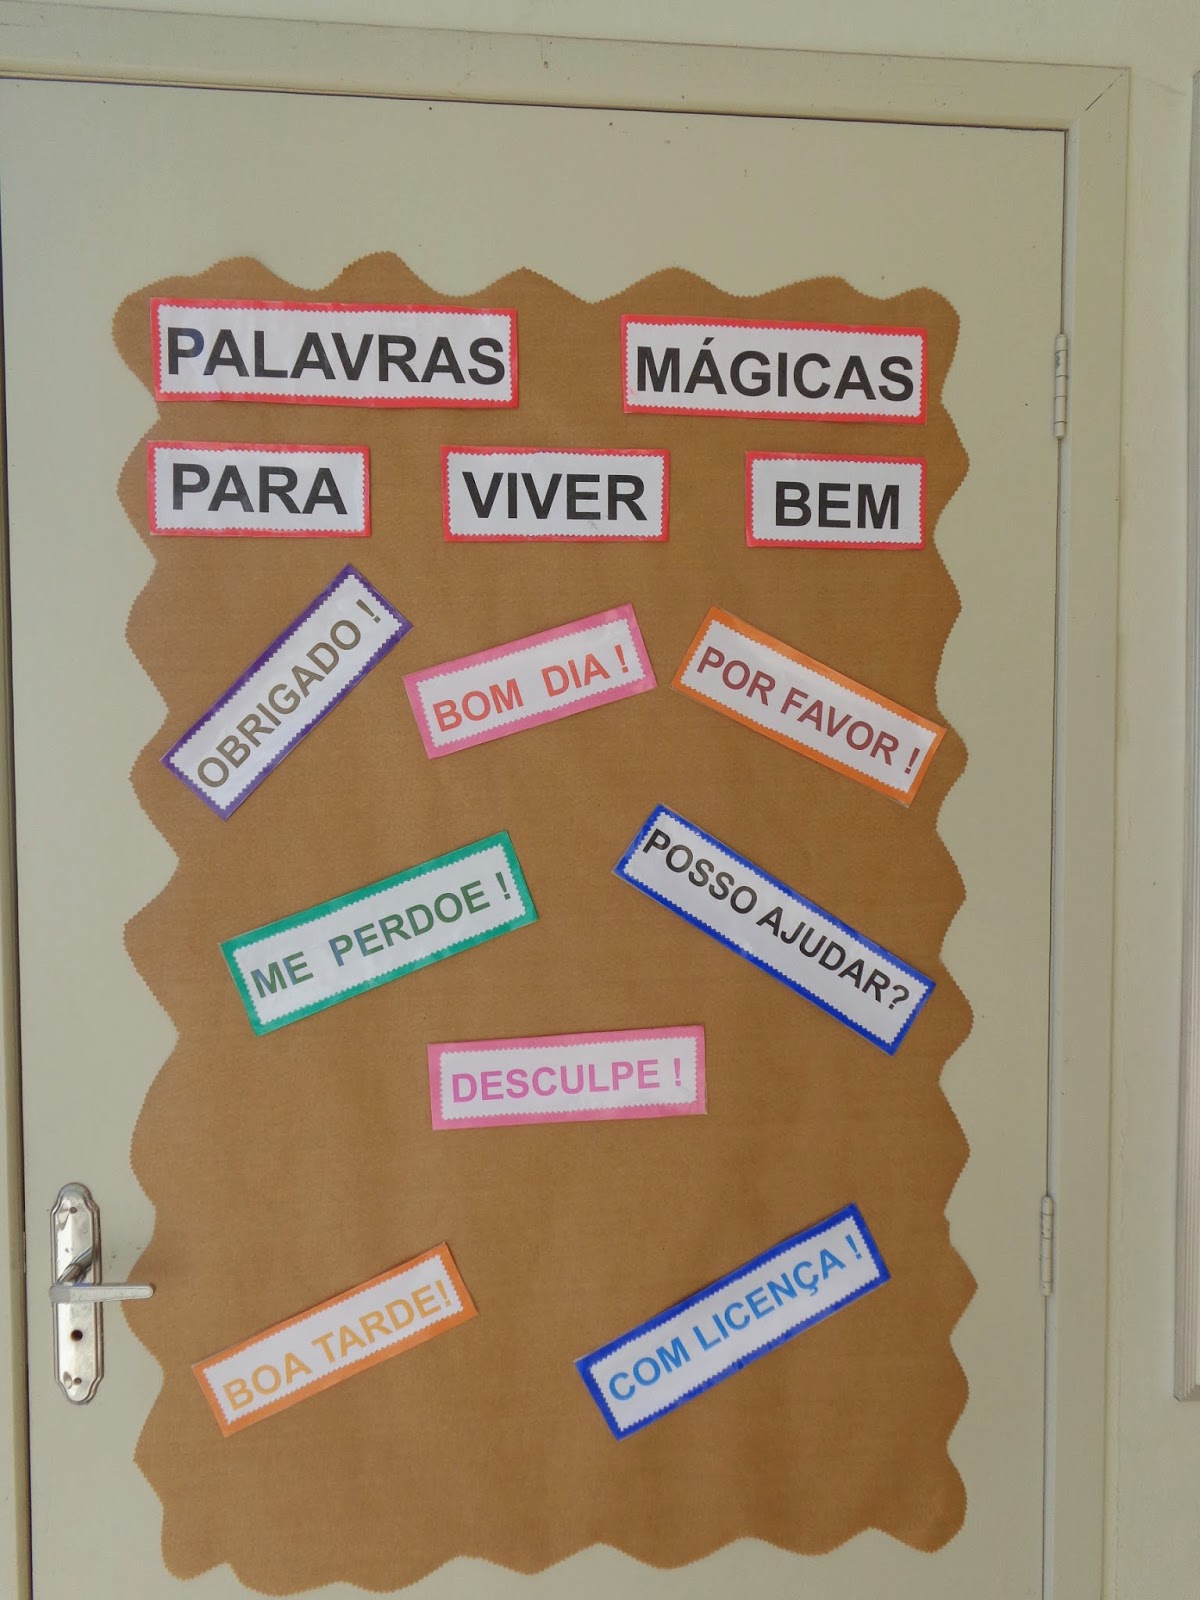 PALAVRAS MÁGICAS
PARA VIVER BEM
OBRIGADO !
BOM DIA !
POR FAVOR !
ME PERDOE !
POSSO AJUDAR?
DESCULPE !
BOA TARDE!
COM LICENÇA !